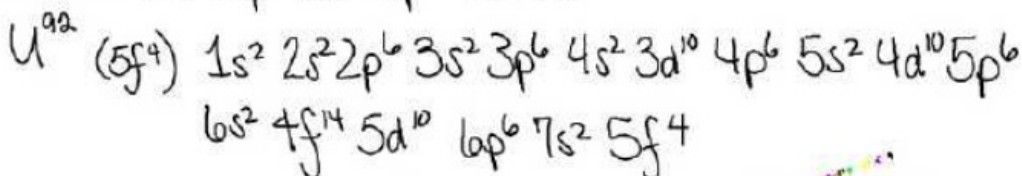 U⁹² (5f⁴) 1s² 2s² 2p⁶ 3s² 3p⁶ 4s² 3d¹⁰ 4p⁶ 5s² 4d¹⁰ 5p⁶
6s² 4f¹⁴ 5d¹⁰ 6p⁶ 7s² 5f⁴